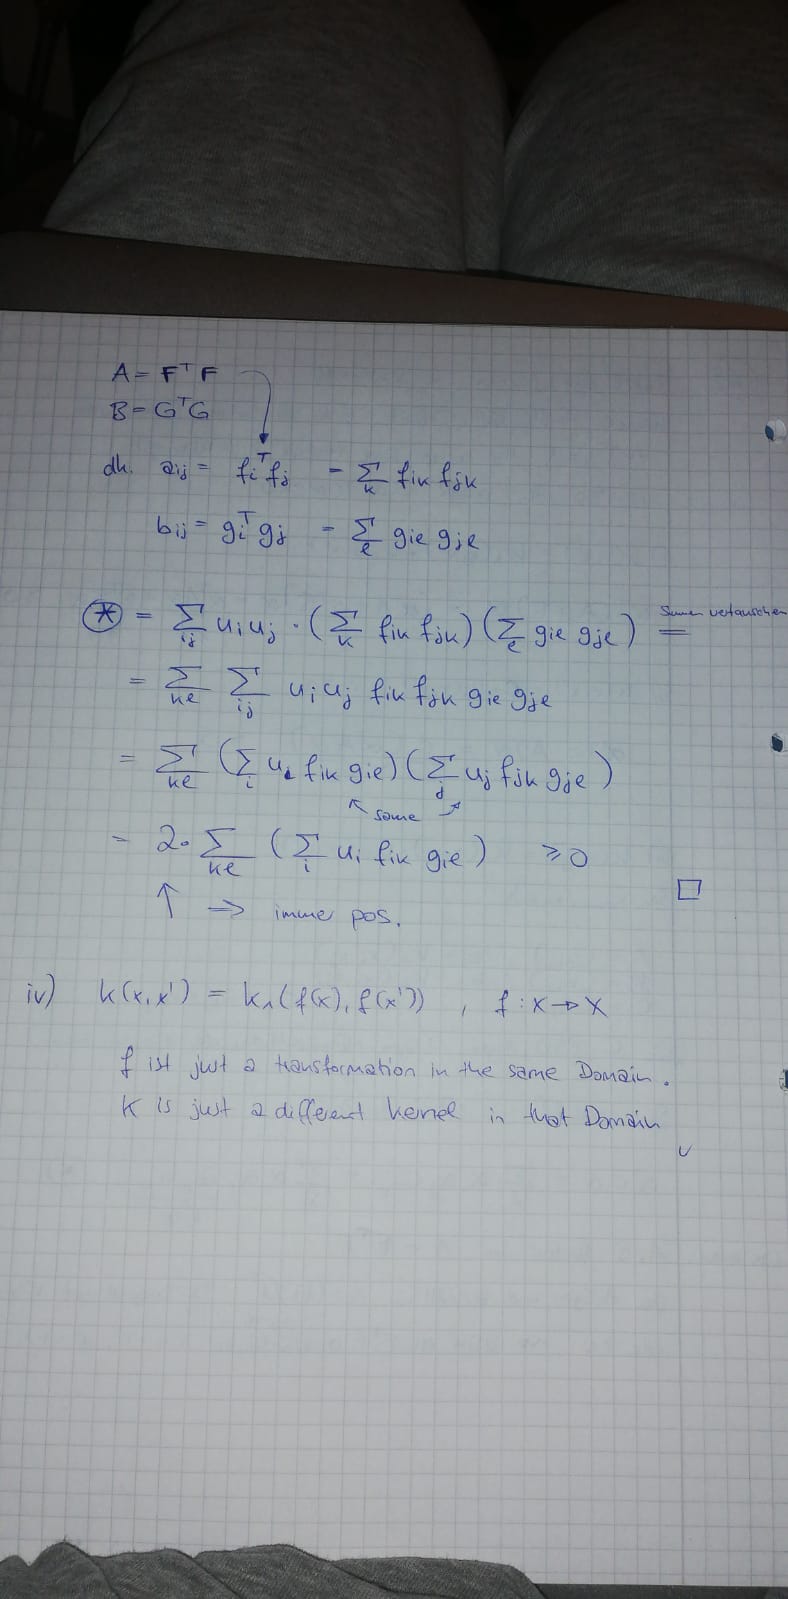 A = FᵀF
B = GᵀG
dh. aij = fiᵀfj = Σk fik fjk
bij = giᵀgj = Σl gil gjl
⊛ = Σij uiuj · (Σk fik fjk)(Σl gil gjl) = Summen vertauschen
= Σkl Σij uiuj fik fjk gil gjl
= Σkl (Σi ui fik gil)(Σj uj fjk gjl)
↖ same ↗
= 2· Σkl (Σi ui fik gil) ≥ 0 □
↑ ⇒ imme pos.
iv) k(x,x') = k₁(f(x), f(x')) , f: X → X
f ist just a transformation in the same Domain.
K is just a different kernel in that Domain